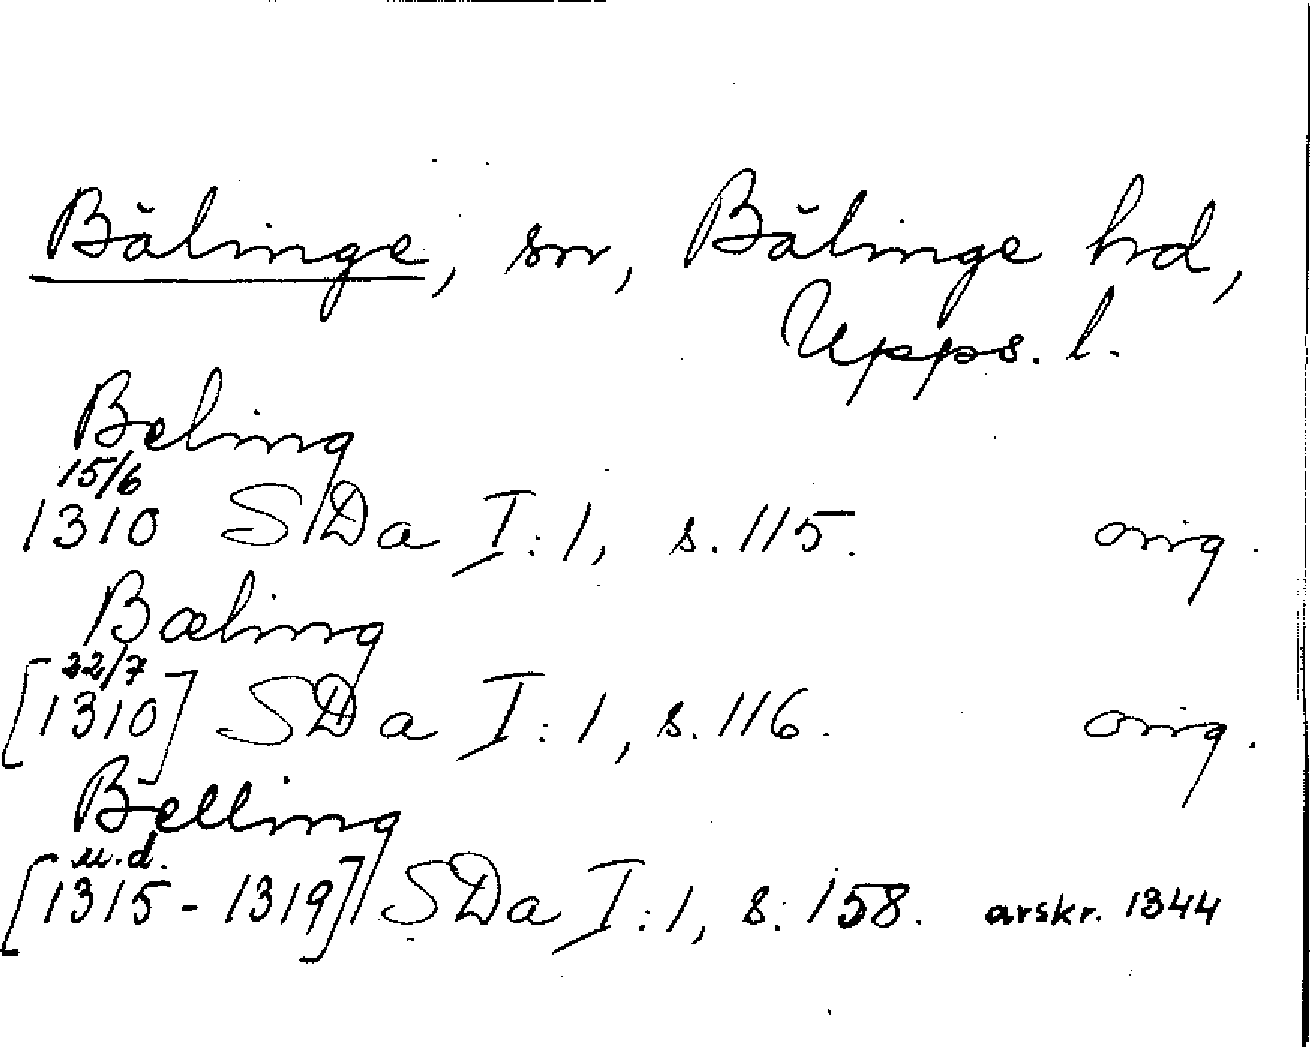 Bälinge, sn, Bälinge hd,
Upps. l.
Beling
15/6
1310 SDa I:1, s. 115. orig.
Bæling
22/7
[1310] SDa I:1, s. 116. orig.
Belling
u.d.
[1315-1319] SDa I:1, s. 158. avskr. 1344